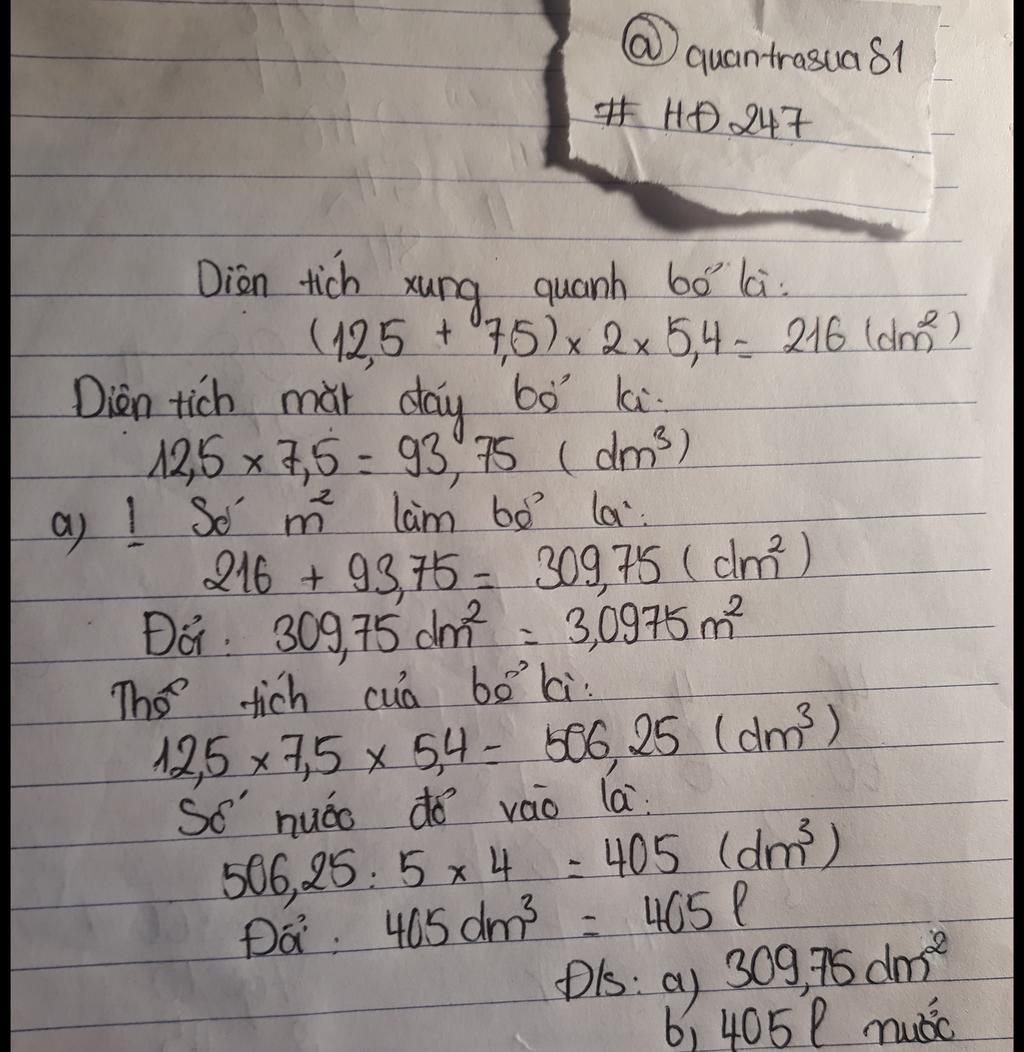 @quantrasua81
# HĐ.247
Diện tích xung quanh bể là:
(12,5 + 7,5) x 2 x 5,4 = 216 (dm²)
Diện tích mặt đáy bể là:
12,5 x 7,5 = 93,75 (dm³)
a) ! Số m² làm bể là:
216 + 93,75 = 309,75 (dm²)
Đổi: 309,75 dm² = 3,0975 m²
Thể tích của bể là:
12,5 x 7,5 x 5,4 = 506,25 (dm³)
Số nước đổ vào là:
506,25 : 5 x 4 = 405 (dm³)
Đổi: 405 dm³ = 405 l
Đ/s: a) 309,75 dm²
b) 405 l nước